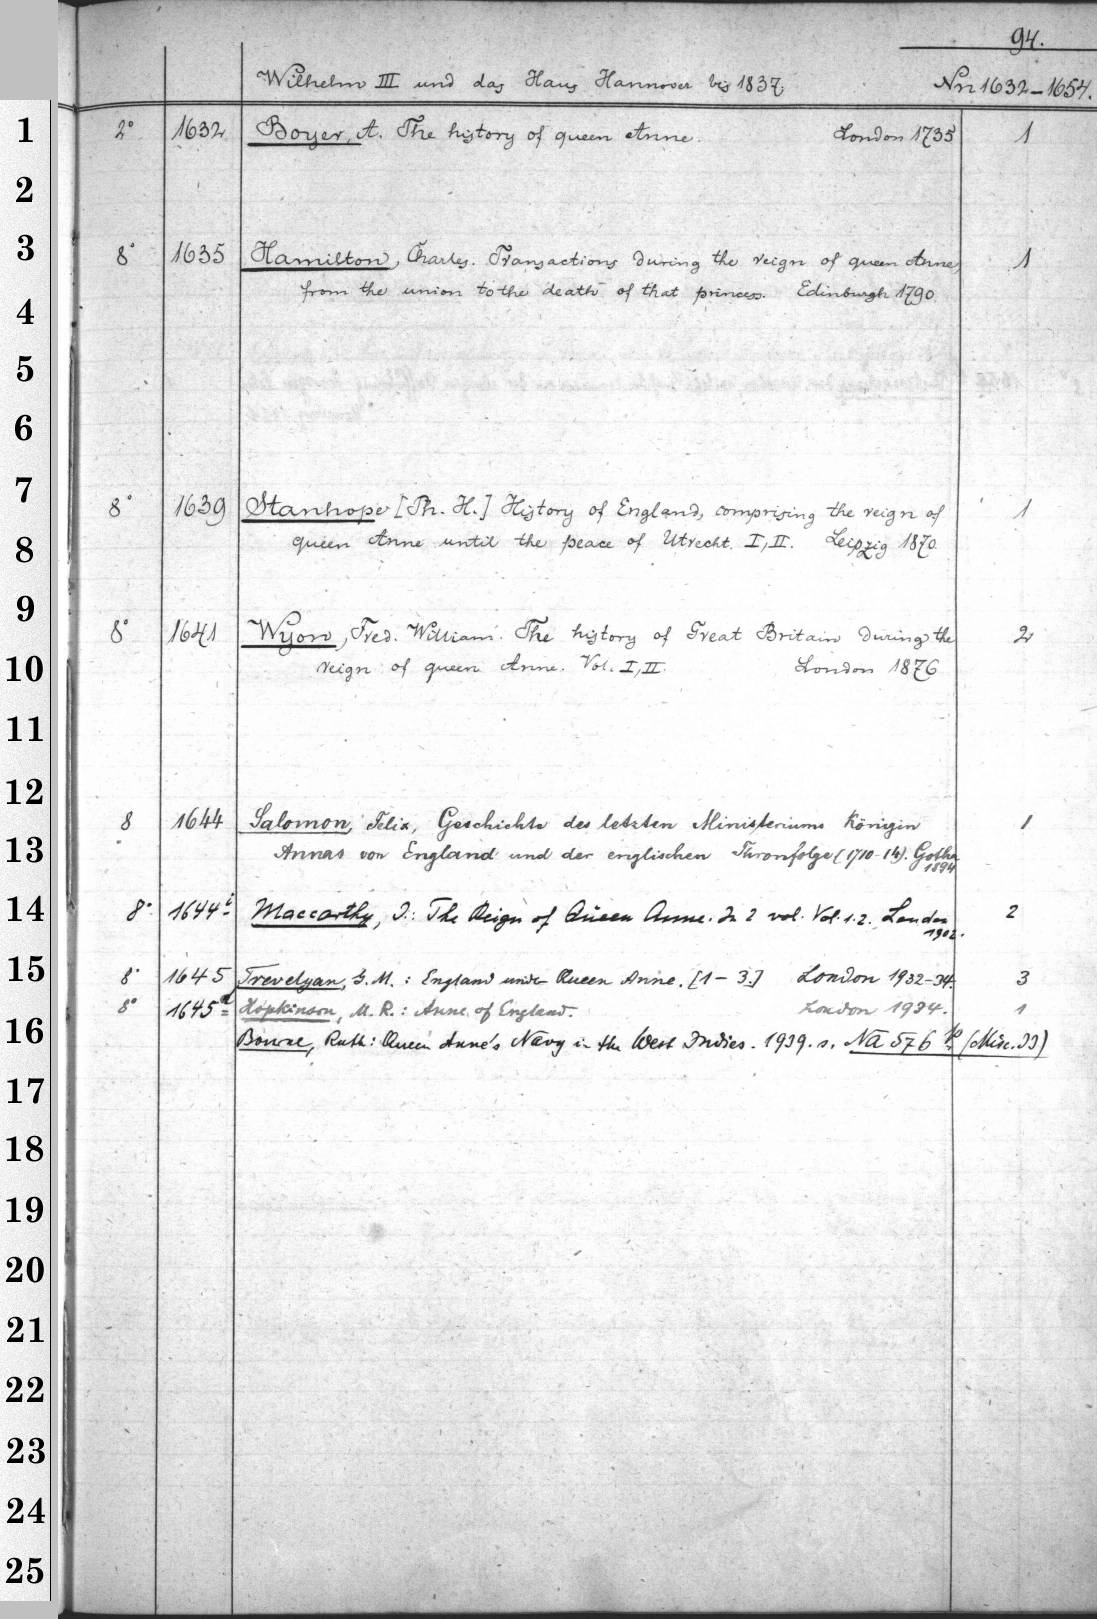 94.
Wilhelm III und das Haus Hannover bis 1837. Nrn 1632-1654.
1
2° 1632 Boyer, A. The history of queen Anne. London 1735 1
2
3
8° 1635 Hamilton, Charles. Transactions during the reign of queen Anne, 1
from the union to the death of that princess. Edinburgh 1790.
4
5
6
7
8° 1639 Stanhope [Ph. H.] History of England, comprising the reign of 1
queen Anne until the peace of Utrecht. I, II. Leipzig 1870.
8
9
8° 1641 Wyon, Fred. William. The history of Great Britain during the 2
reign of queen Anne. Vol. I, II. London 1876
10
11
12
8° 1644 Salomon, Felix, Geschichte des letzten Ministeriums Königin 1
13
Annas von England und der englischen Thronfolge (1710-14). Gotha
1894
14
8° 1644 Maccarthy, J.: The Reign of Queen Anne. In 2 vol. Vol. 1.2. London 2
1902.
15
8° 1645 Trevelyan, G. M.: England under Queen Anne. [1-3.] London 1932-34. 3
8° 1645a Hopkinson, M. R.: Anne of England. London 1934. 1
16
Bourne, Ruth: Queen Anne's Navy in the West Indies. 1939. s. Na 576 (Misc. II)
17
18
19
20
21
22
23
24
25